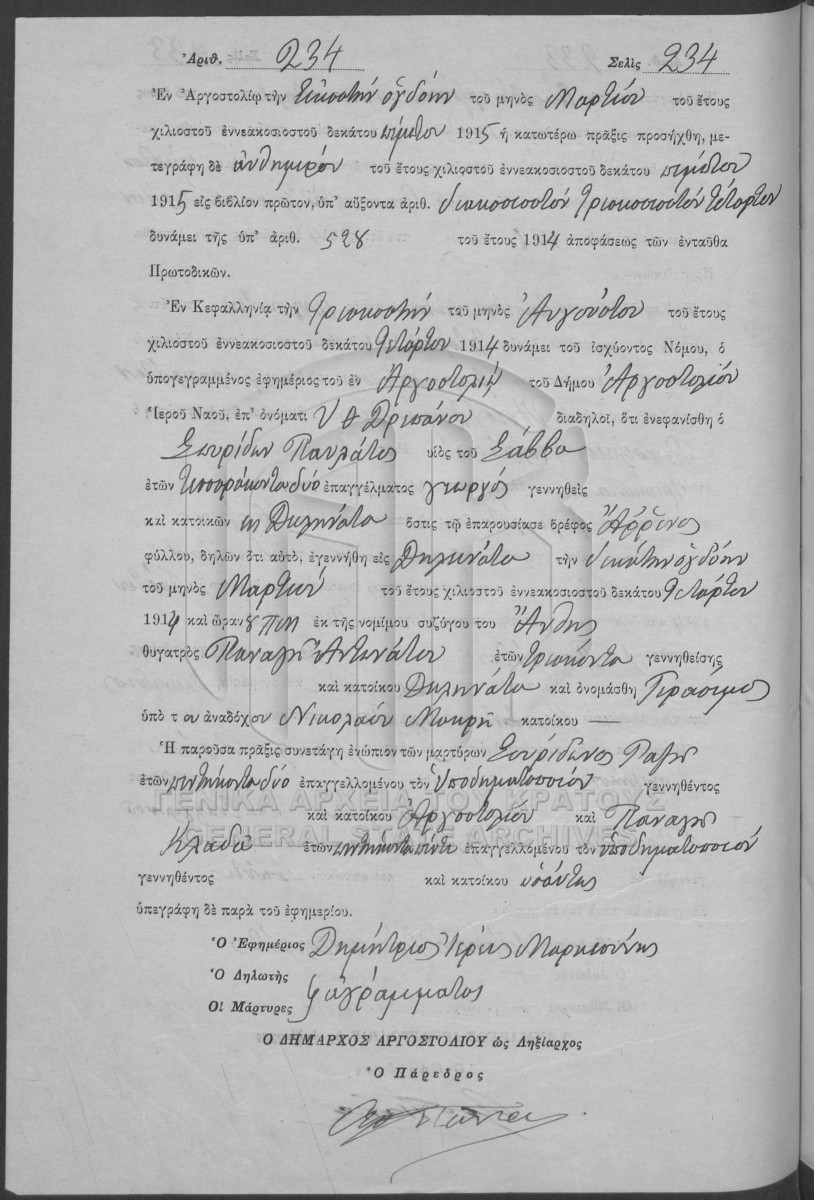 Ἀριθ. 234 Σελὶς 234
Ἐν Ἀργοστολίῳ τὴν εἰκοστὴν ὀγδόην τοῦ μηνὸς Μαρτίου τοῦ ἔτους
χιλιοστοῦ ἐννεακοσιοστοῦ δεκάτου πέμπτου 1915 ἡ κατωτέρω πρᾶξις προσήχθη, με-
τεγράφη δὲ αὐθημερόν τοῦ ἔτους χιλιοστοῦ ἐννεακοσιοστοῦ δεκάτου πέμπτου
1915 εἰς βιβλίον πρῶτον, ὑπ' αὔξοντα ἀριθ. διακοσιοστόν τριακοστόν τέταρτον
δυνάμει τῆς ὑπ' ἀριθ. 528 τοῦ ἔτους 1914 ἀποφάσεως τῶν ἐνταῦθα
Πρωτοδικῶν.
Ἐν Κεφαλληνίᾳ τὴν τριακοστὴν τοῦ μηνὸς Αὐγούστου τοῦ ἔτους
χιλιοστοῦ ἐννεακοσιοστοῦ δεκάτου τετάρτου 1914 δυνάμει τοῦ ἰσχύοντος Νόμου, ὁ
ὑπογεγραμμένος ἐφημέριος τοῦ ἐν Ἀργοστολίῳ τοῦ Δήμου Ἀργοστολίου
Ἱεροῦ Ναοῦ, ἐπ' ὀνόματι Υ Θ Δρεπάνου διαδηλοῖ, ὅτι ἐνεφανίσθη ὁ
Σπυρίδων Παυλάτος υἱὸς τοῦ Σάββα
ἐτῶν τεσσαράκοντα δύο ἐπαγγέλματος γεωργός γεννηθεὶς
καὶ κατοικῶν εἰς Διλινάτα ὅστις τῷ ἐπαρουσίασε βρέφος ἄρρενος
φύλλου, δηλῶν ὅτι αὐτὸ, ἐγεννήθη εἰς Διλινάτα τὴν εἰκοστὴν ὀγδόην
τοῦ μηνὸς Μαρτίου τοῦ ἔτους χιλιοστοῦ ἐννεακοσιοστοῦ δεκάτου τετάρτου
1914 καὶ ὥραν 8 πμ ἐκ τῆς νομίμου συζύγου του Ἄνθης
θυγατρὸς Παναγῆ Ἀντωνάτου ἐτῶν τριάκοντα γεννηθείσης
καὶ κατοίκου Διλινάτα καὶ ὀνομάσθη Γεράσιμος
ὑπὸ τ ου ἀναδόχου Νικολάου Μακρῆ κατοίκου —
Ἡ παροῦσα πρᾶξις συνετάγη ἐνώπιον τῶν μαρτύρων Σπυρίδωνος
ἐτῶν πεντήκοντα δύο ἐπαγγελλομένου τὸν ὑποδηματοποιόν γεννηθέντος
καὶ κατοίκου Ἀργοστολίου καὶ Παναγῆ
Κλαδᾶ ἐτῶν πεντήκοντα πέντε ἐπαγγελλομένου τὸν ὑποδηματοποιόν
γεννηθέντος καὶ κατοίκου ὡσαύτως
ὑπεγράφη δὲ παρὰ τοῦ ἐφημερίου.
Ὁ Ἐφημέριος Δημήτριος Ἱερεὺς
Ὁ Δηλωτὴς ἀγράμματος
Οἱ Μάρτυρες
Ὁ ΔΗΜΑΡΧΟΣ ΑΡΓΟΣΤΟΛΙΟΥ ὡς Ληξίαρχος
Ὁ Πάρεδρος
ΓΕΝΙΚΑ ΑΡΧΕΙΑ ΤΟΥ ΚΡΑΤΟΥΣ
GENERAL STATE ARCHIVES